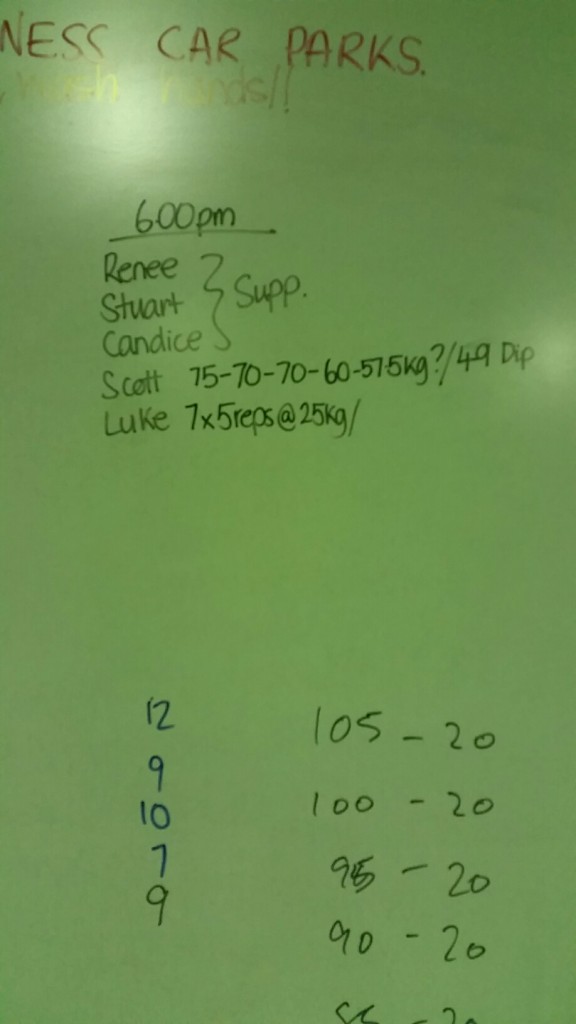 NESS CAR PARKS.
wash hands!!
6.00pm
Renee
Stuart } Supp.
Candice
Scott 75-70-70-60-57.5kg?/49 Dip
Luke 7x5reps@25kg/
12
9
10
7
9
105 - 20
100 - 20
95 - 20
90 - 20